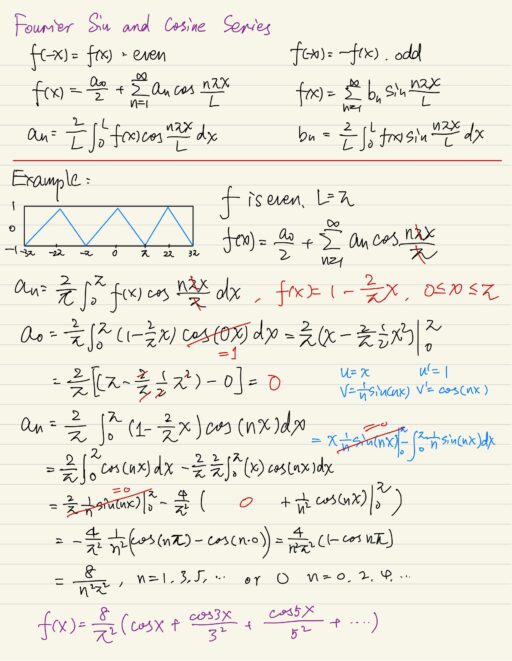 Fourier Sin and Cosine Series
f(-x) = f(x) . even
f(-x) = -f(x) . odd
f(x) = a₀/2 + Σ_{n=1}^{∞} aₙ cos nπx/L
f(x) = Σ_{n=1}^{∞} bₙ sin nπx/L
aₙ = 2/L ∫₀^L f(x) cos nπx/L dx
bₙ = 2/L ∫₀^L f(x) sin nπx/L dx
Example:
f is even, L=π
1
0
-1
-3π -2π -π 0 π 2π 3π
f(x) = a₀/2 + Σ_{n=1}^{∞} aₙ cos nπx/π
aₙ = 2/π ∫₀^π f(x) cos nπx/π dx , f(x) = 1 - 2/π x, 0≤x≤π
a₀ = 2/π ∫₀^π (1 - 2/π x) cos(0x) dx = 2/π (x - 2/π 1/2 x²) |₀^π
=1
= 2/π [(π - 2/π 1/2 π²) - 0] = 0
u=x u'=1
v=1/n sin(nx) v'=cos(nx)
aₙ = 2/π ∫₀^π (1 - 2/π x) cos(nx) dx
=0
= x 1/n sin(nx)|₀^π - ∫₀^π 1/n sin(nx) dx
= 2/π ∫₀^π cos(nx) dx - 2/π 2/π ∫₀^π (x) cos(nx) dx
=0
= 2/π 1/n sin(nx)|₀^π - 4/π² ( 0 + 1/n² cos(nx)|₀^π )
= - 4/π² 1/n² (cos(nπ) - cos(n·0)) = 4/n²π² (1 - cos nπ)
= 8/n²π² , n=1,3,5,... or 0 n=0,2,4,...
f(x) = 8/π² (cosx + cos3x/3² + cos5x/5² + ....)